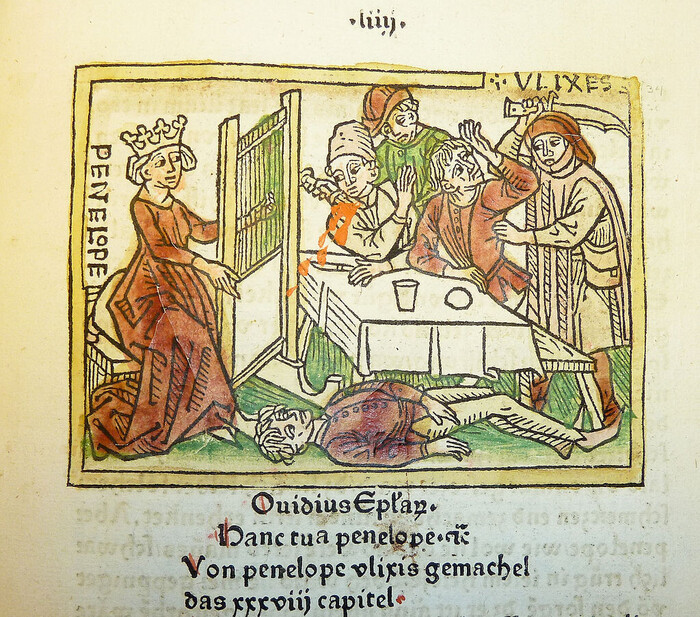 ·liiij·
VLIXES
PENELOPE
Ouidius Epl'aꝝ.
Hanc tua penelope.
Von penelope vlixis gemachel
das xxxviij capitel